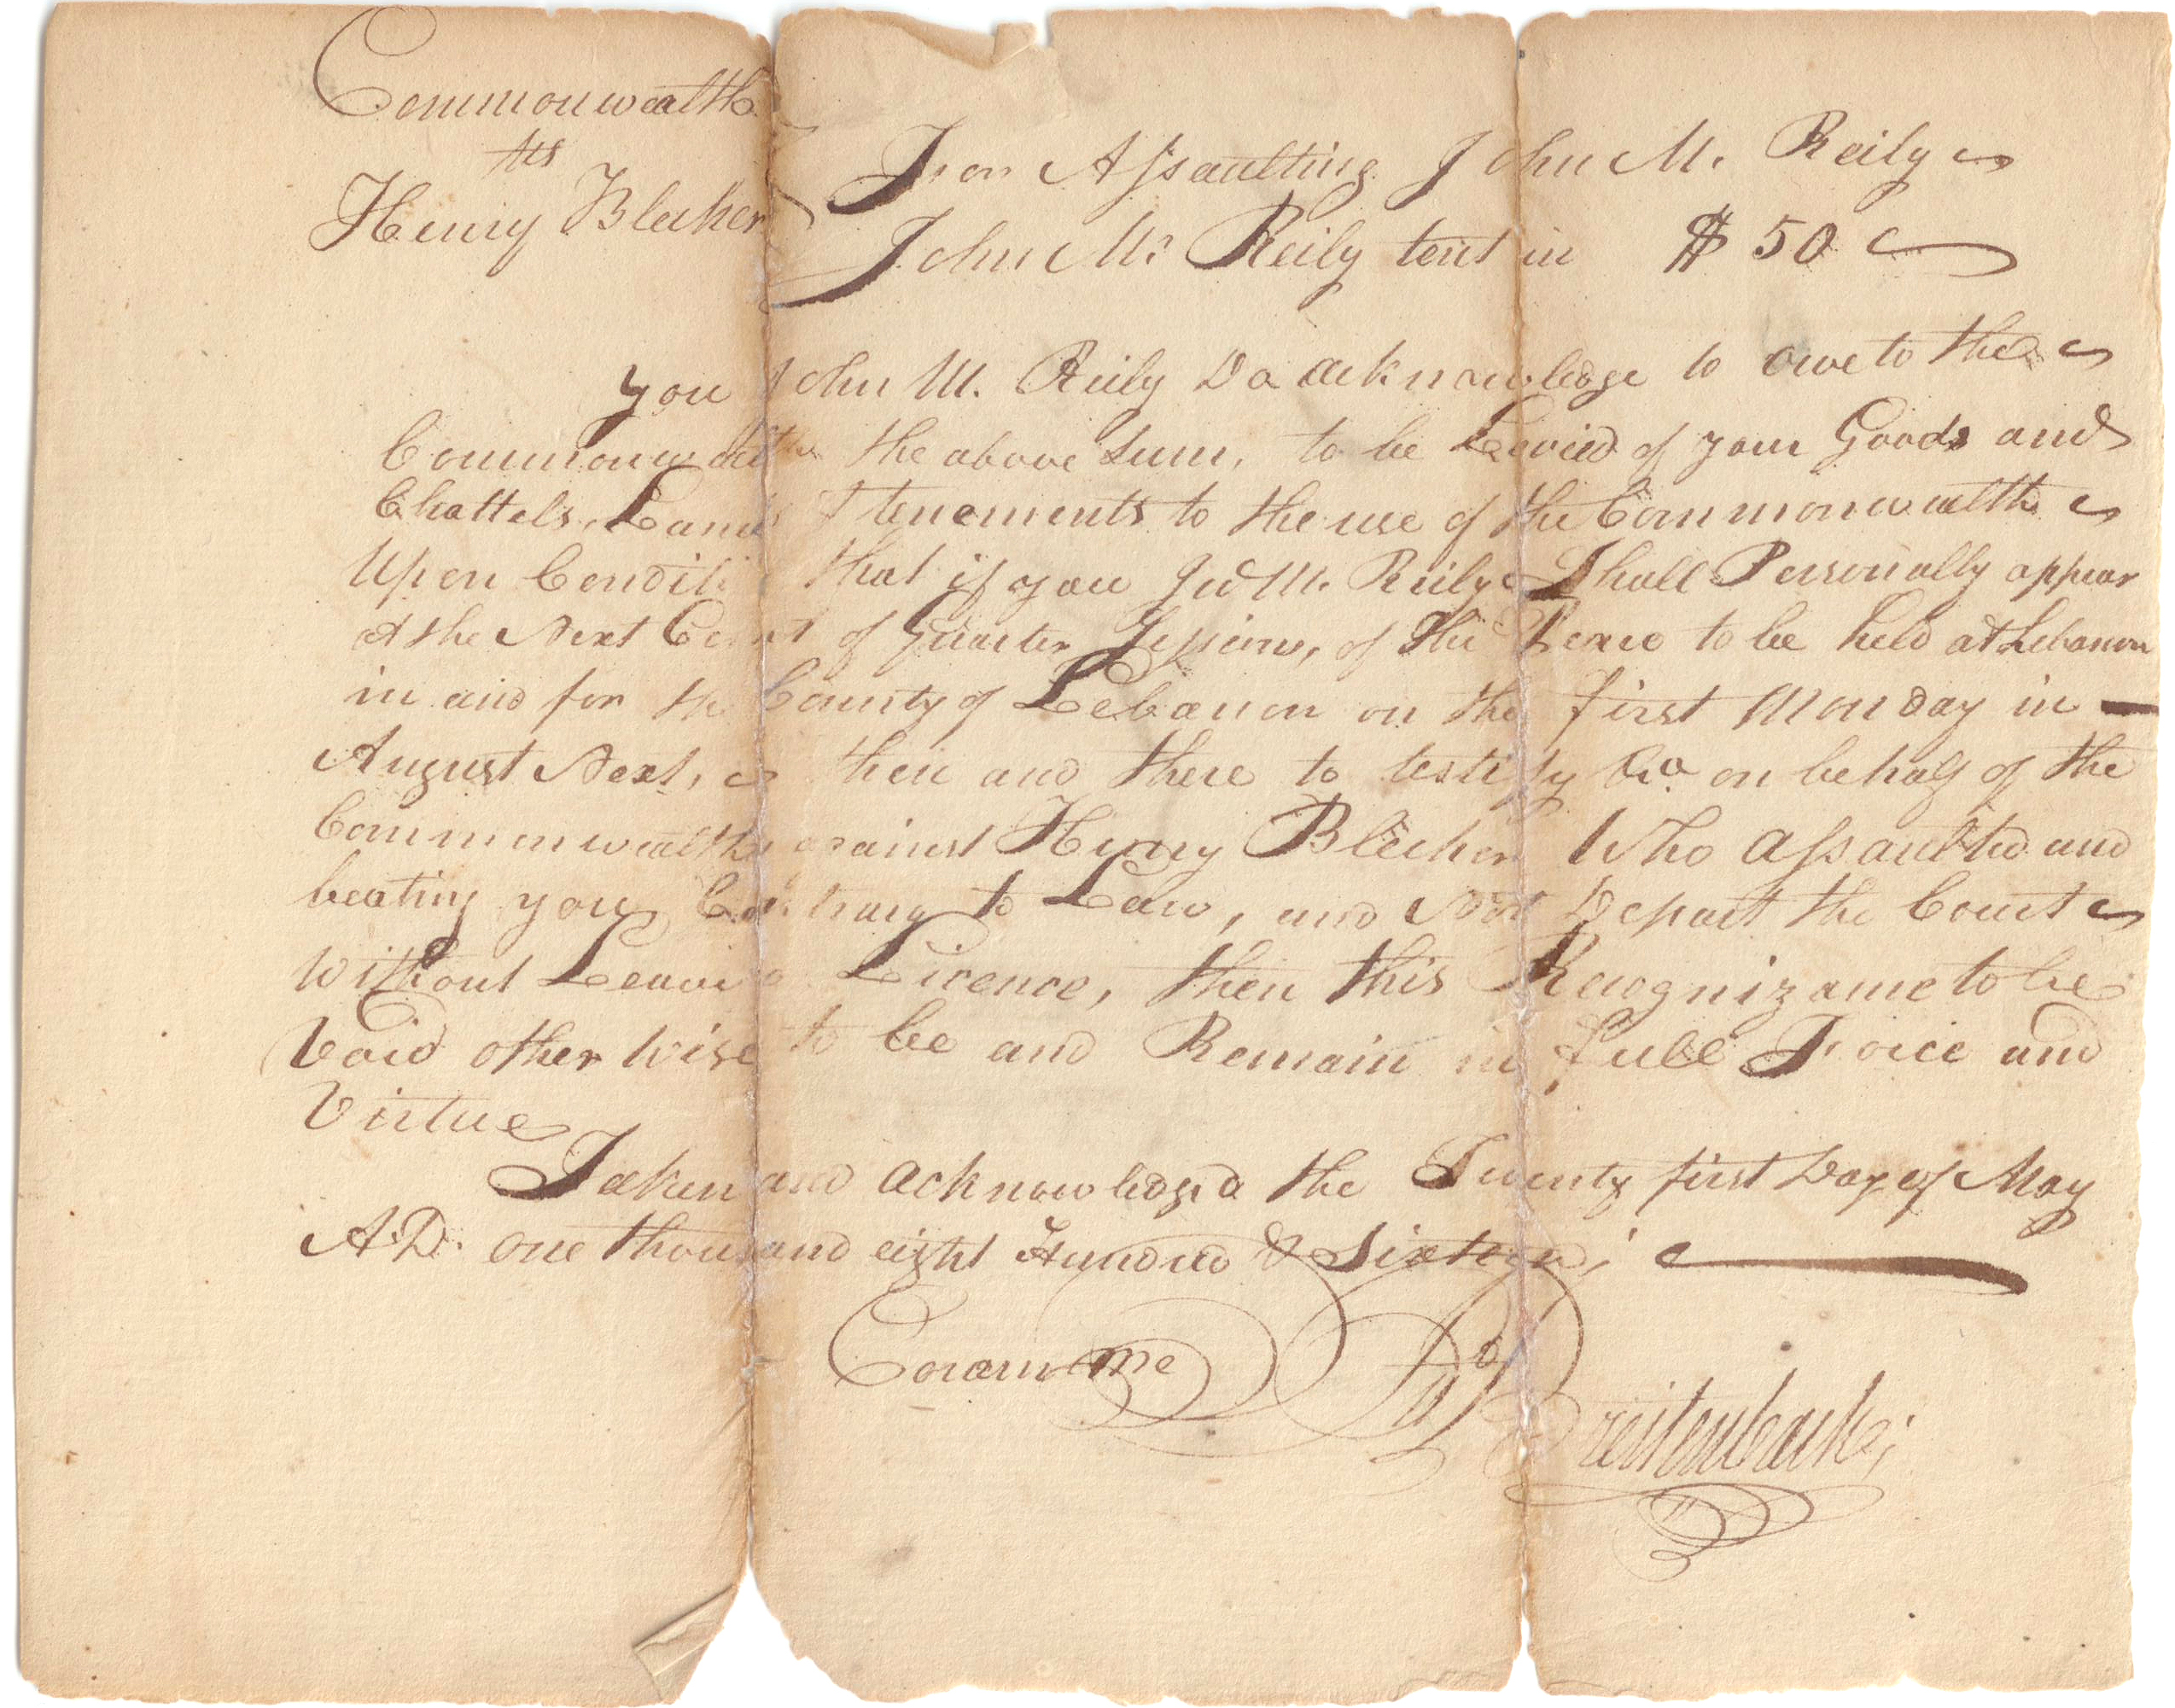 Commonwealth
vs
Henry Blecher
For Assaulting John M. Reily
John M. Reily tent in $ 50
you John M. Reily Do acknowledge to owe to the
Commonwealth the above Sum, to be Levied of your Goods and
Chattels, Lands & tenements to the use of the Commonwealth
Upon Condition that if you Jno M. Reily Shall Personally appear
at the Next Court of Quarter Sessions, of the Peace to be held at Lebanon
in and for the County of Lebanon on the first Monday in
August Next, then and there to testify &ca on behalf of the
Commonwealth against Henry Blecher Who assaulted and
beating you Contrary to Law, and Not Depart the Court
Without Leave or Licence, then this Recognizance to be
Void other Wise to be and Remain in full Force and
Virtue
Taken and acknowledged the Twenty first Day of May
A.D. one thousand eight Hundred & Sixteen;
Coram me
Breitenbach;